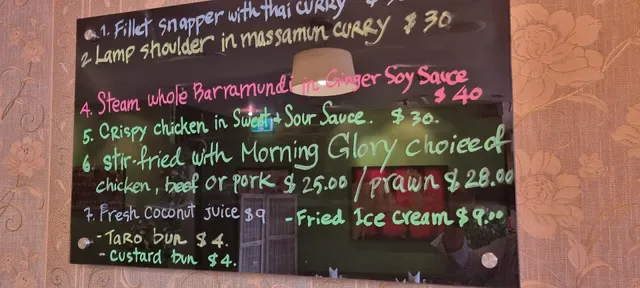 1. Fillet snapper with thai curry $
2. Lamp shoulder in massamun curry $30
4. Steam whole Barramundi in Ginger Soy Sauce
$40
5. Crispy chicken in Sweet & Sour Sauce. $30.
6. Stir-fried with Morning Glory choice of
chicken, beef or pork $25.00 / prawn $28.00
7. Fresh Coconut juice $9 - Fried Ice cream $9.00
- Taro bun $4.
- custard bun $4.